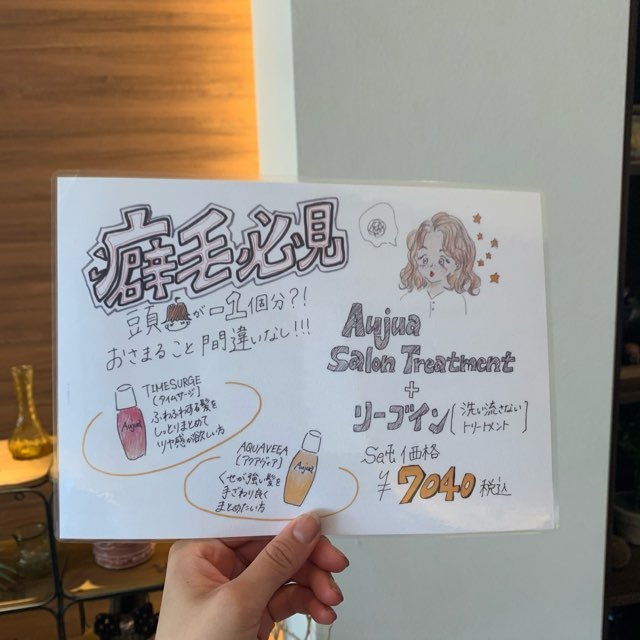 癖毛必見
頭が-1個分?!
おさまること間違いなし!!!
Aujua
TIMESURGE
[タイムサージ]
ふわふわする髪を
しっとりまとめて
ツヤ感が欲しい方
Aujua
AQUAVEEA
[アクアヴィア]
くせが強い髪を
まざわり良く
まとめたい方
Aujua
Salon Treatment
+
リーブイン[洗い流さないトリートメント]
Set価格
¥7040税込